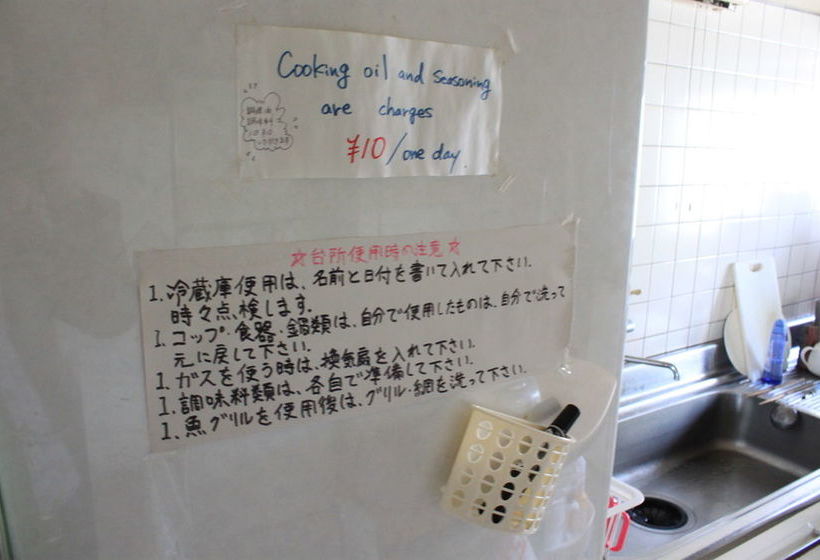 Cooking oil and seasoning
are charges
¥10/one day.
☆台所使用時の注意☆
1. 冷蔵庫使用は、名前と日付を書いて入れて下さい.
時々点検します.
1. コップ・食器・鍋類は、自分で使用したものは、自分で洗って
元に戻して下さい.
1. ガスを使う時は、換気扇を入れて下さい.
1. 調味料類は、各自で準備して下さい.
1. 魚グリルを使用後は、グリル・網を洗って下さい.